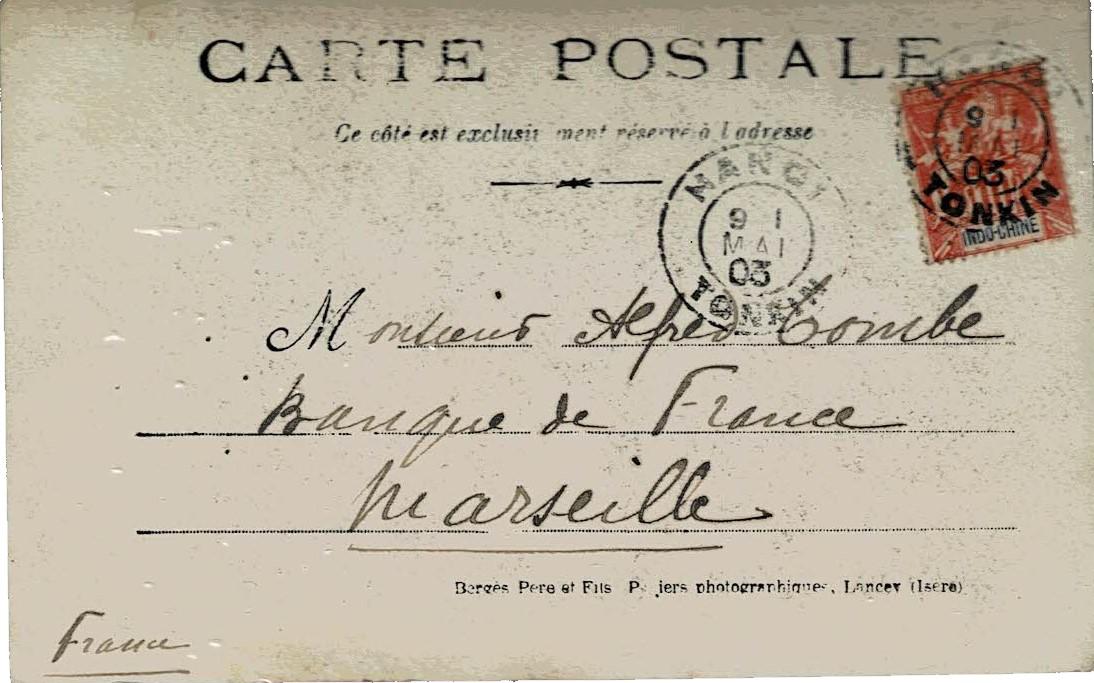 CARTE POSTALE
Ce côté est exclusivement réservé à l'adresse
HANOI
9 1
MAI
03
TONKIN
HANOI
9 1
MAI
03
TONKIN
INDO-CHINE
Monsieur Alfred Combe
Banque de France
Marseille
Bergès Pere et Fils Papiers photographiques, Lancey (Isère)
France